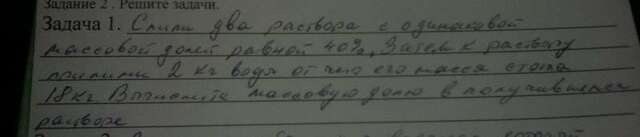 Задание 2. Решите задачи.
Задача 1. Слили два раствора с одинаковой
массовой долей равной 40%, Затем к раствору
прилили 2 кг воды от чего его масса стала
18 кг. Вычислите массовую долю в получившемся
растворе